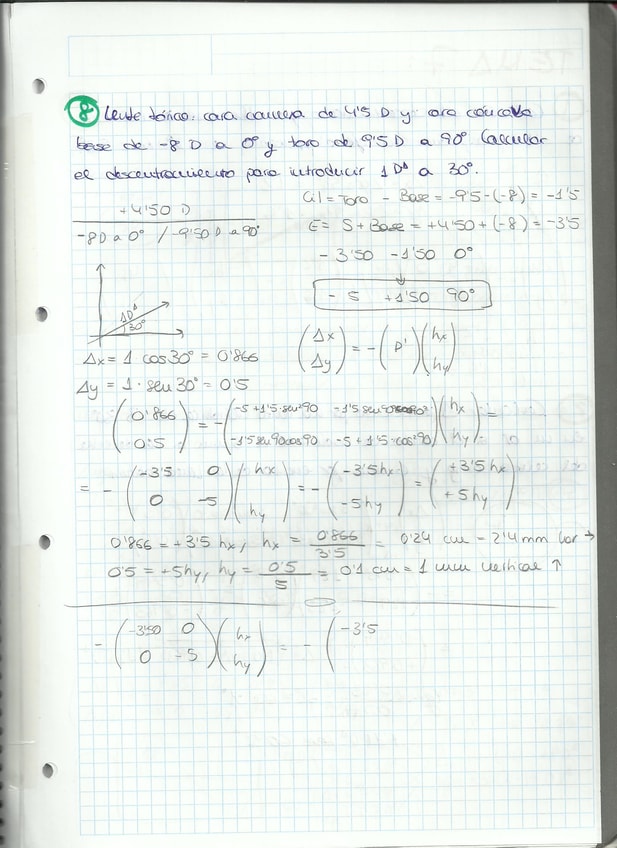 8 Lente tórica: cara convexa de 4'5 D y cara cóncava
base de -8 D a 0° y toro de 9'5 D a 90° Calcular
el descentramiento para introducir 1 D^Δ a 30°.
+4'50 D
-8D a 0° / -9'50 D a 90°
Cil = Toro - Base = -9'5-(-8) = -1'5
E = S + Base = +4'50 + (-8) = -3'5
- 3'50 -1'50 0°
↓
- 5 +1'50 90°
1D^Δ
30°
Δx = 1 cos 30° = 0'866
Δy = 1 · sen 30° = 0'5
(Δx Δy) = - (P') (hx hy)
(0'866 0'5) = - (-5 + 1'5·sen²90 -1'5 sen 90 cos 90° -1'5 sen 90 cos 90 -5 + 1'5·cos²90) (hx hy) =
= - (-3'5 0 0 -5) (hx hy) = - (-3'5hx -5hy) = (+3'5 hx +5hy)
0'866 = +3'5 hx, hx = 0'866 / 3'5 = 0'24 cm = 2'4 mm hor →
0'5 = +5hy, hy = 0'5 / 5 = 0'1 cm = 1 mm vertical ↑
- (-3'50 0 0 -5) (hx hy) = - (-3'5